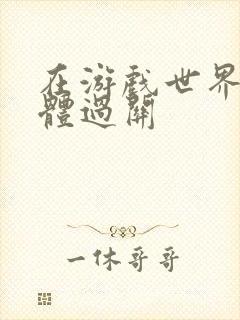 在游戏世界
體過關
一休哥哥